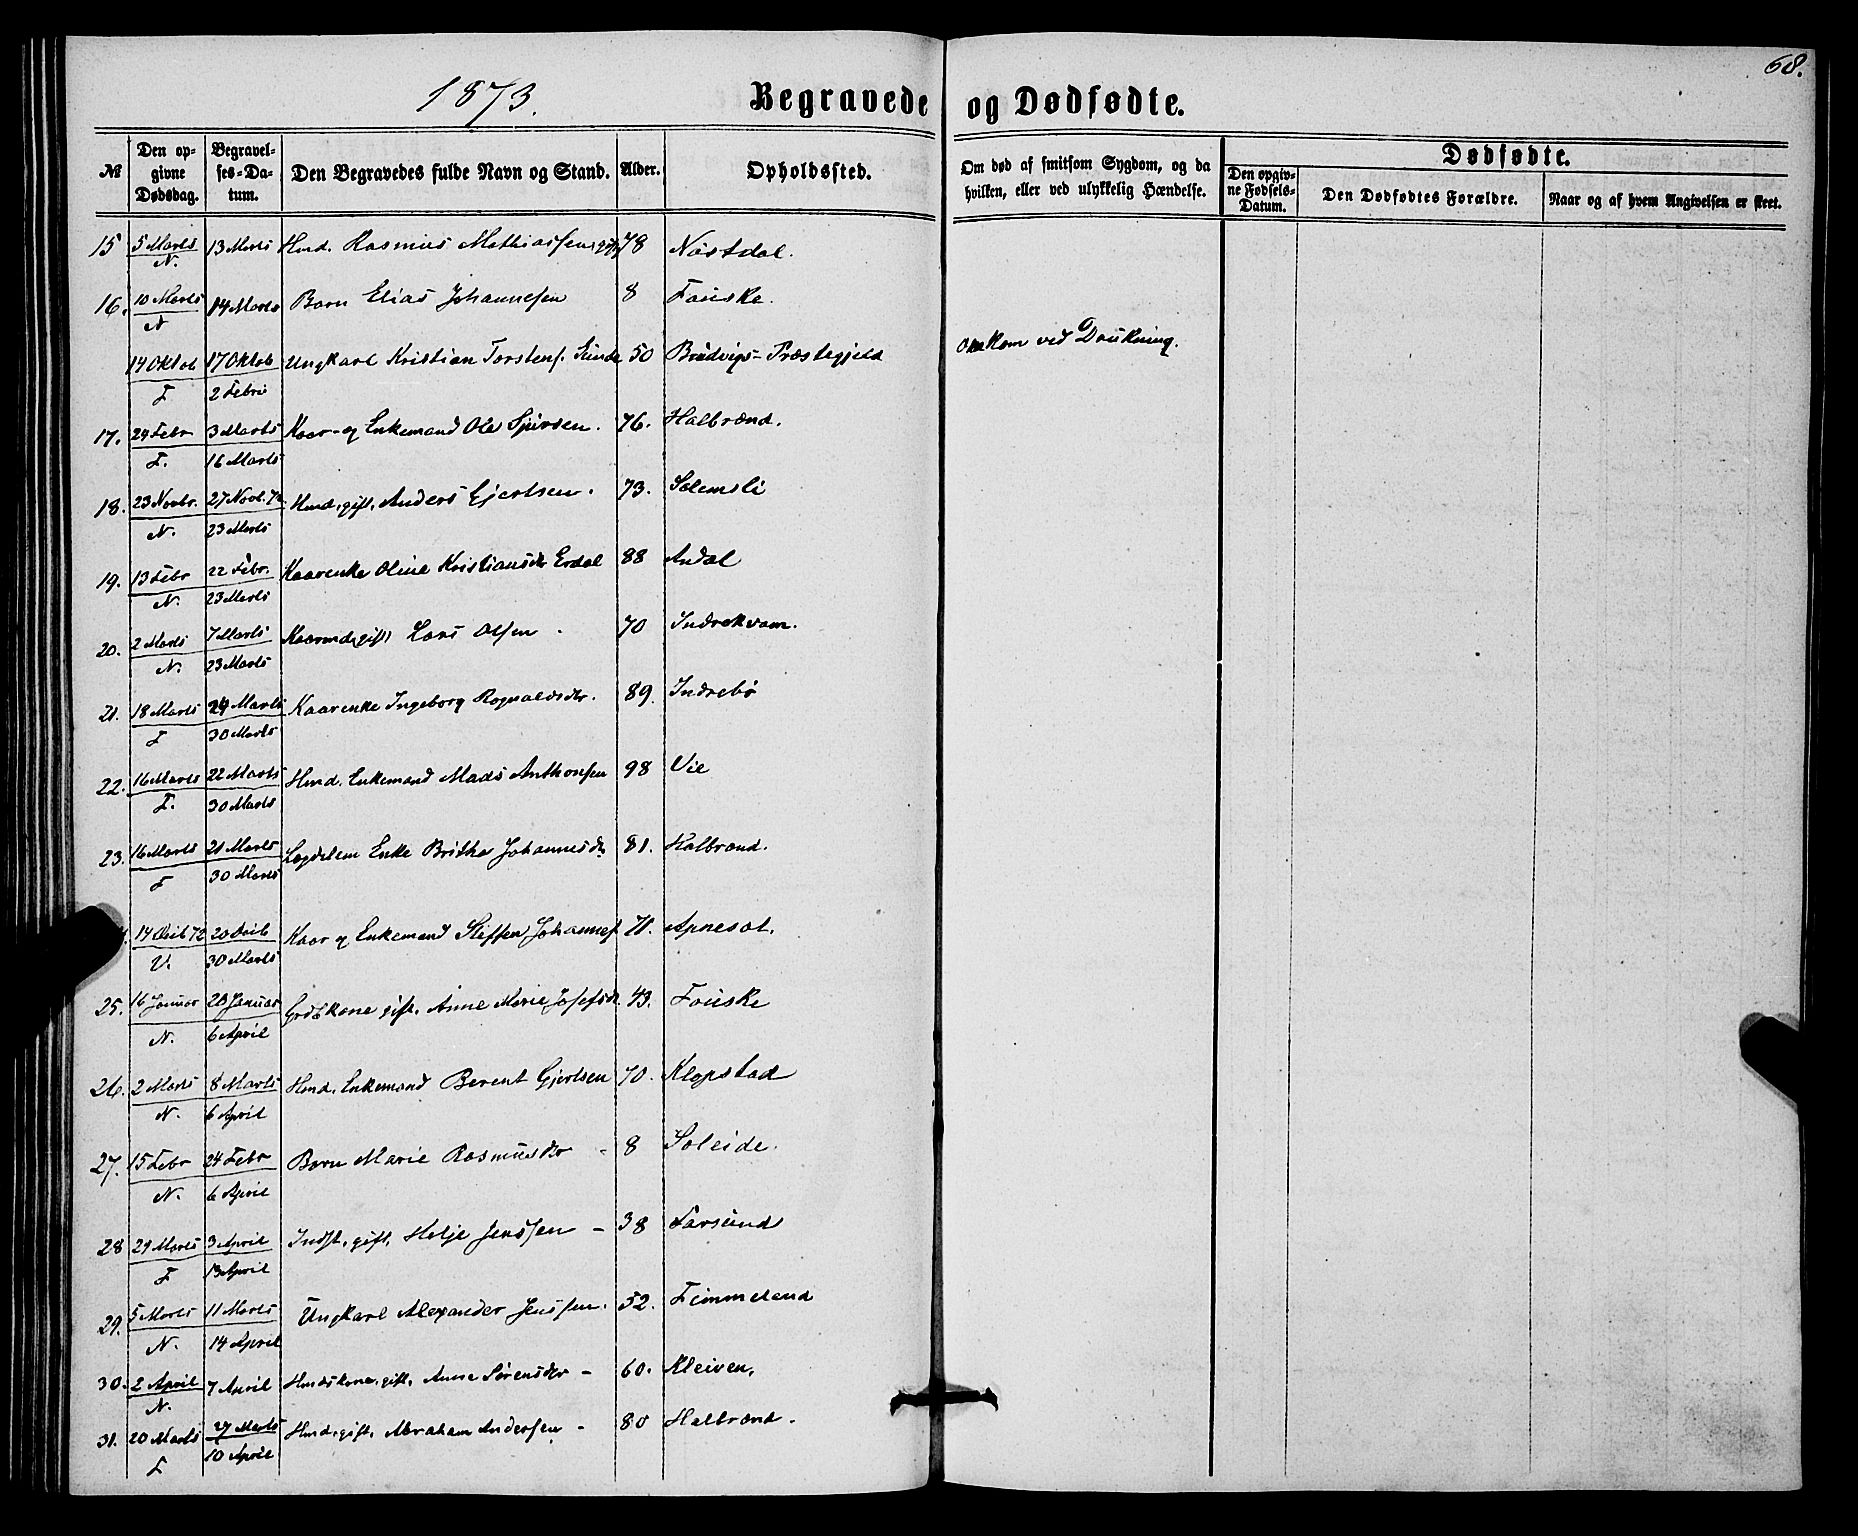 68.
1873. Begravede og Dødfødte.
№ Den opgivne Dødsdag. Begravelses-Datum. Den Begravedes fulde Navn og Stand. Alder. Opholdssted. Om død af smitsom Sygdom, og da hvilken, eller ved ulykkelig Hændelse. Dødfødte. Den opgivne Fødsels-Datum. Den Dødfødtes Forældre. Naar og af hvem Angivelsen er skeet.
15 5 Marts 13 Marts Hmd. Rasmus Mathiassen, gift 78 Nøstdal.
N.
16. 10 Marts 14 Marts Barn Elias Johannesen 8 Fauske.
N
14 Oktob 17 Oktob Ungkarl Kristian Torstens. Sunde 50 Brudvigs-Præstegjeld omkom ved Drukning.
F 2 Febru
17. 24 Febr 3 Marts Kaar- og Enkemand Ole Sjursen. 76. Halbrænd.
F. 16 Marts
18. 23 Novbr. 27 Novb. 72 Hmd, gift, Anders Gjertsen. 73. Solemsli
N. 23 Marts
19. 13 Febr 22 Febr. Kaarenke Oline Kristiansdr Erdal 88 Andal
N. 23 Marts
20. 2 Marts 7 Marts Kaarmd, gift, Lars Olsen 70 Indrekvam.
N. 23 Marts
21. 18 Marts 24 Marts Kaarenke Ingeborg Rognaldsdr. 89. Indrebø
F 30 Marts
22. 16 Marts 22 Marts Hmd. Enkemand Mads Anthonsen 98 Vie
F. 30 Marts
23. 16 Marts 21 Marts Lægdslem Enke Britha Johannesdr 81. Halbrænd.
F 30 Marts
14 Decb 72 20 Decb Kaar og Enkemand Steffen Johannes. 71. Apnesæt.
V. 30 Marts
25. 16 Januar 20 Januar Grdbkone gift, Anne Marie Josefsdr. 43. Fauske
N. 6 April
26. 2 Marts 8 Marts Hmd. Enkemand Berent Gjertsen 70. Klopstad
N. 6 April
27. 15 Febr 24 Febr Barn Marie Rasmusdtr - 8 Soleide.
N. 6 April
28 29 Marts 3 April Indst, gift, Helje Jenssen - 38 Farsund
F 13 April
29. 5 Marts 11 Marts Ungkarl Alexander Jenssen. 52. Fimmeland
N. 14 April
30. 2 April 7 April Hmdskone, gift, Anne Sørensdtr - 60. Kleiven.
N.
31. 20 Marts 27 Marts Hmd, gift, Abraham Andersen - 80 Halbrænd.
F 10 April